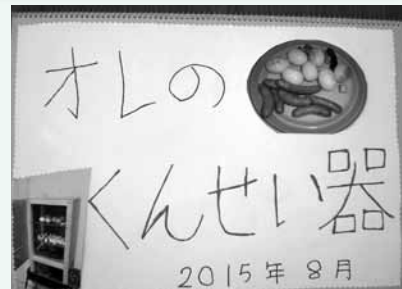 オレの
くんせい器
2015年 8月